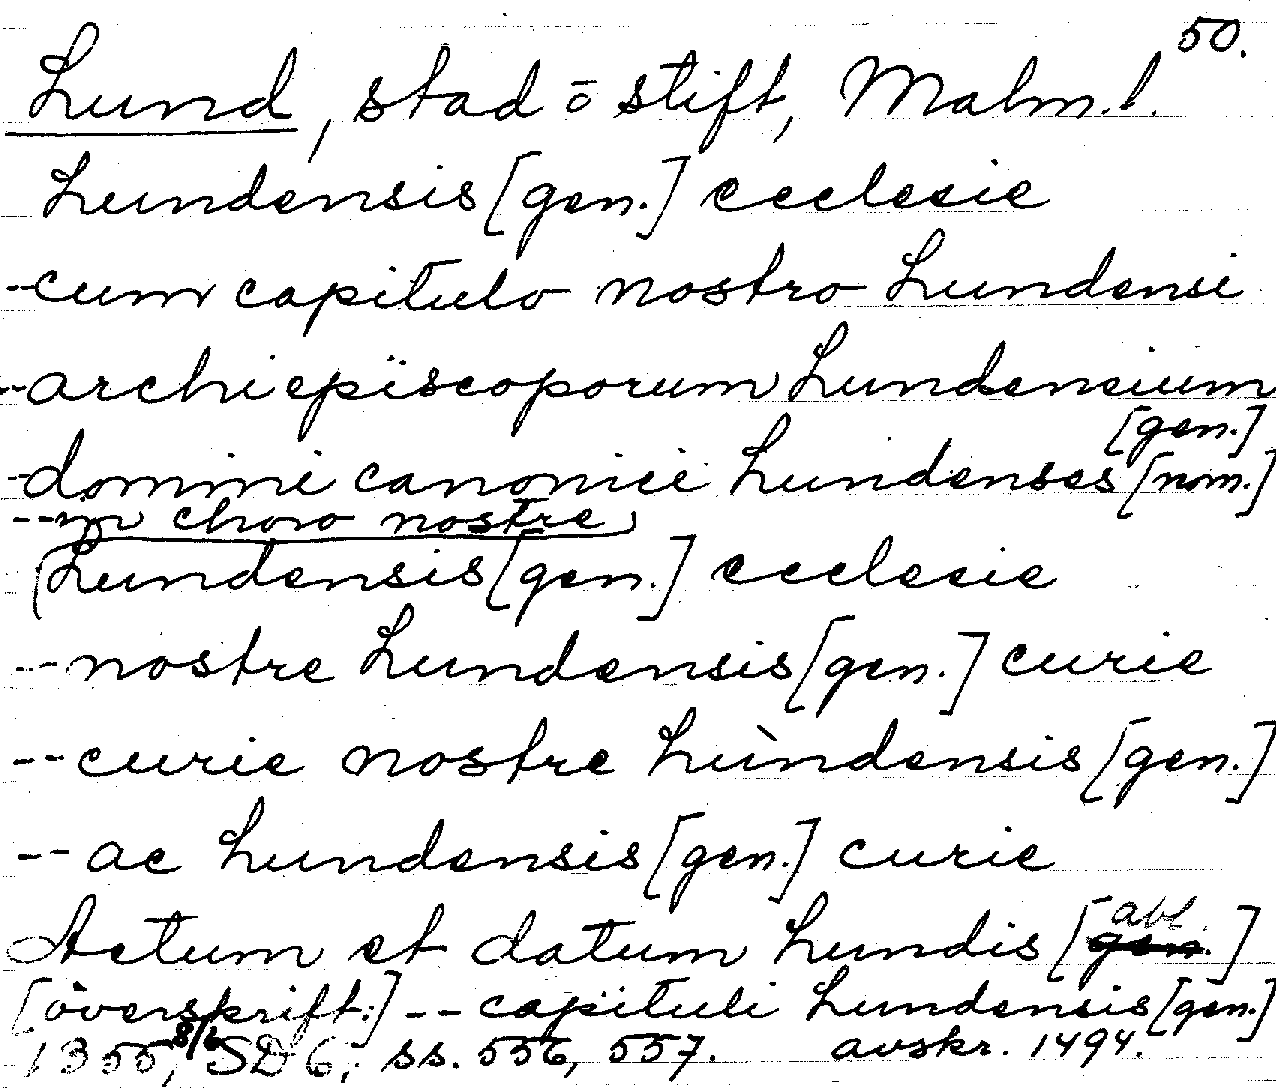 50.
Lund, stad o stift, Malm.l.
Lundensis [gen.] ecclesie
-cum capitulo nostro Lundensi
--archiepiscoporum Lundensium
[gen.]
-domini canonici Lundenses [nom.]
--in choro nostre
Lundensis [gen.] ecclesie
--nostre Lundensis [gen.] curie
--curie nostre Lundensis [gen.]
--ac Lundensis [gen.] curie
Actum et datum Lundis [abl.]
[överskrift:] --capituli Lundensis [gen.]
1355, 8/6 SD 6, ss. 556, 557. avskr. 1494.